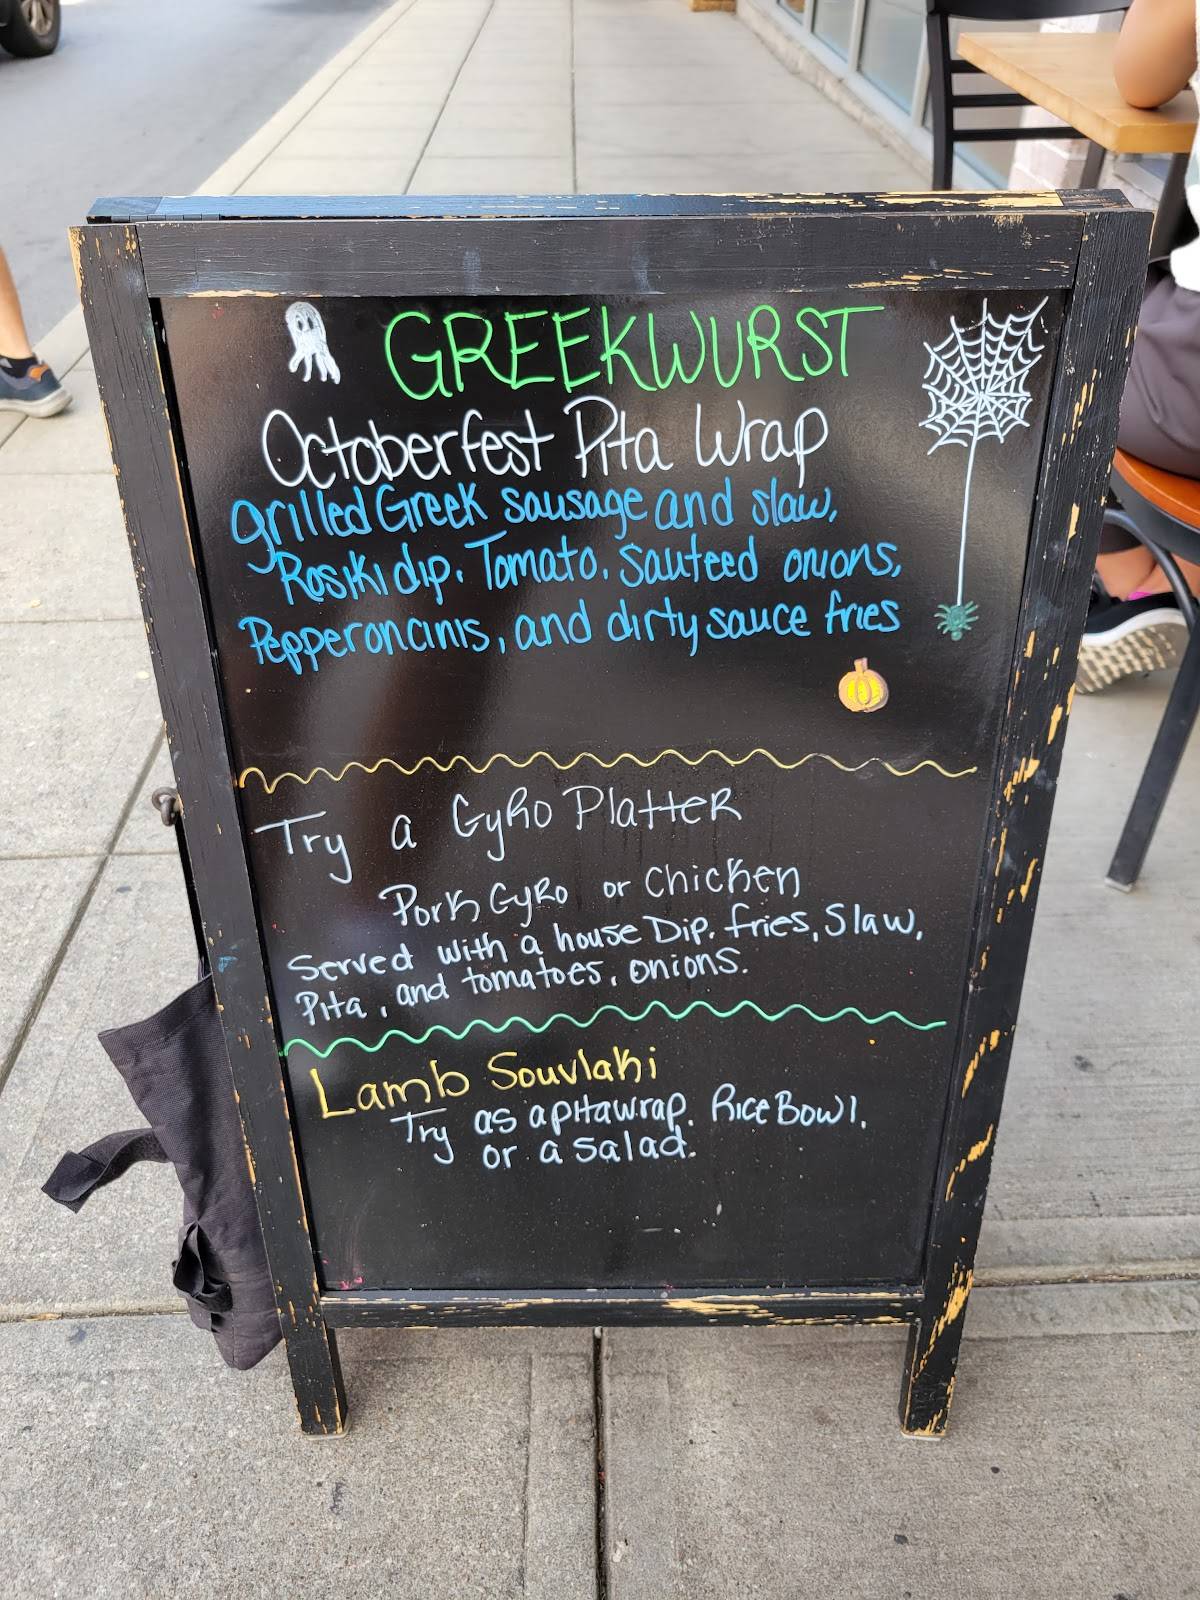 GREEKWURST
Octoberfest Pita Wrap
grilled Greek sausage and slaw,
Rosiki dip. Tomato. Sauteed onions,
Pepperoncinis, and dirty sauce fries
Try a Gyro Platter
Pork Gyro or Chicken
Served with a house Dip. fries, Slaw,
Pita, and tomatoes, onions.
Lamb Souvlaki
Try as a pitawrap. Rice Bowl,
or a salad.